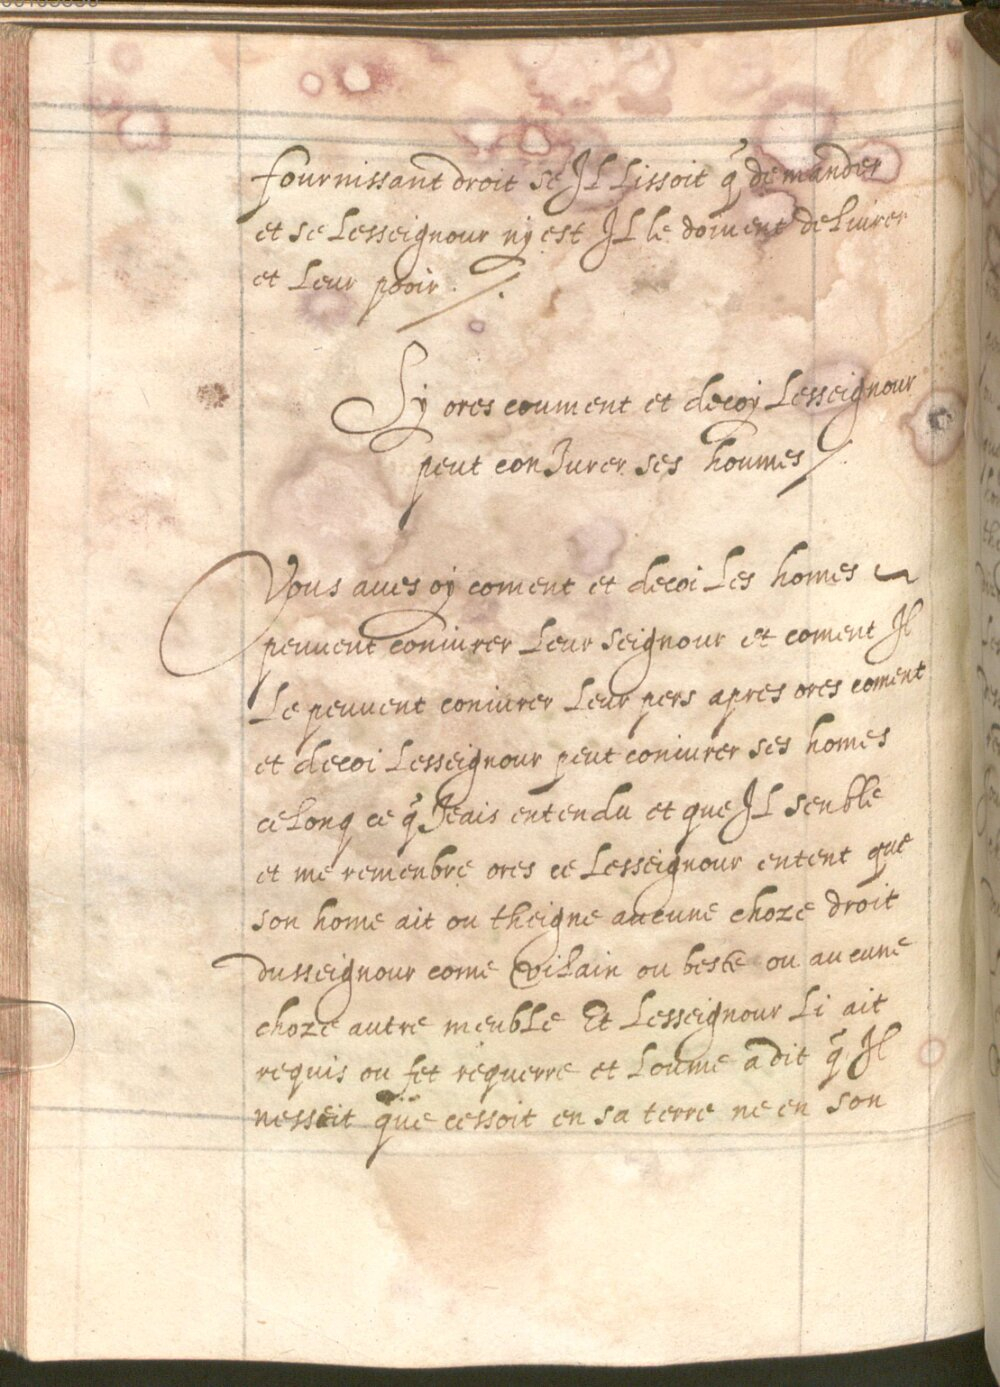 fournissant droit se Jl Lissoit q̃ demander
et se Lesseignour nyest Jl le doiuent deliurer
et Leur pooir ./.
Sy ores coument et decoy Lesseignour
peut conJurer ses houmes /.
Vous aues oy coment et decoi Les homes
peuuent coniurer Leur seignour et coment Jl
Le peuuent coniurer Leur pers apres ores coment
et decoi Lesseignour peut coniurer ses homes
celonq ce q̃ Jeais entendu et que Jl senble
et me remenbre ores ce Lesseignour entent que
son home ait ou theigne aucune choze droit
dusseignour come vilain ou beste ou aucune
choze autre meuble Et Lesseignour Li ait
requis ou fet requerre et Loume a dit q̃ Jl
nesseit que cessoit en sa terre ne en son